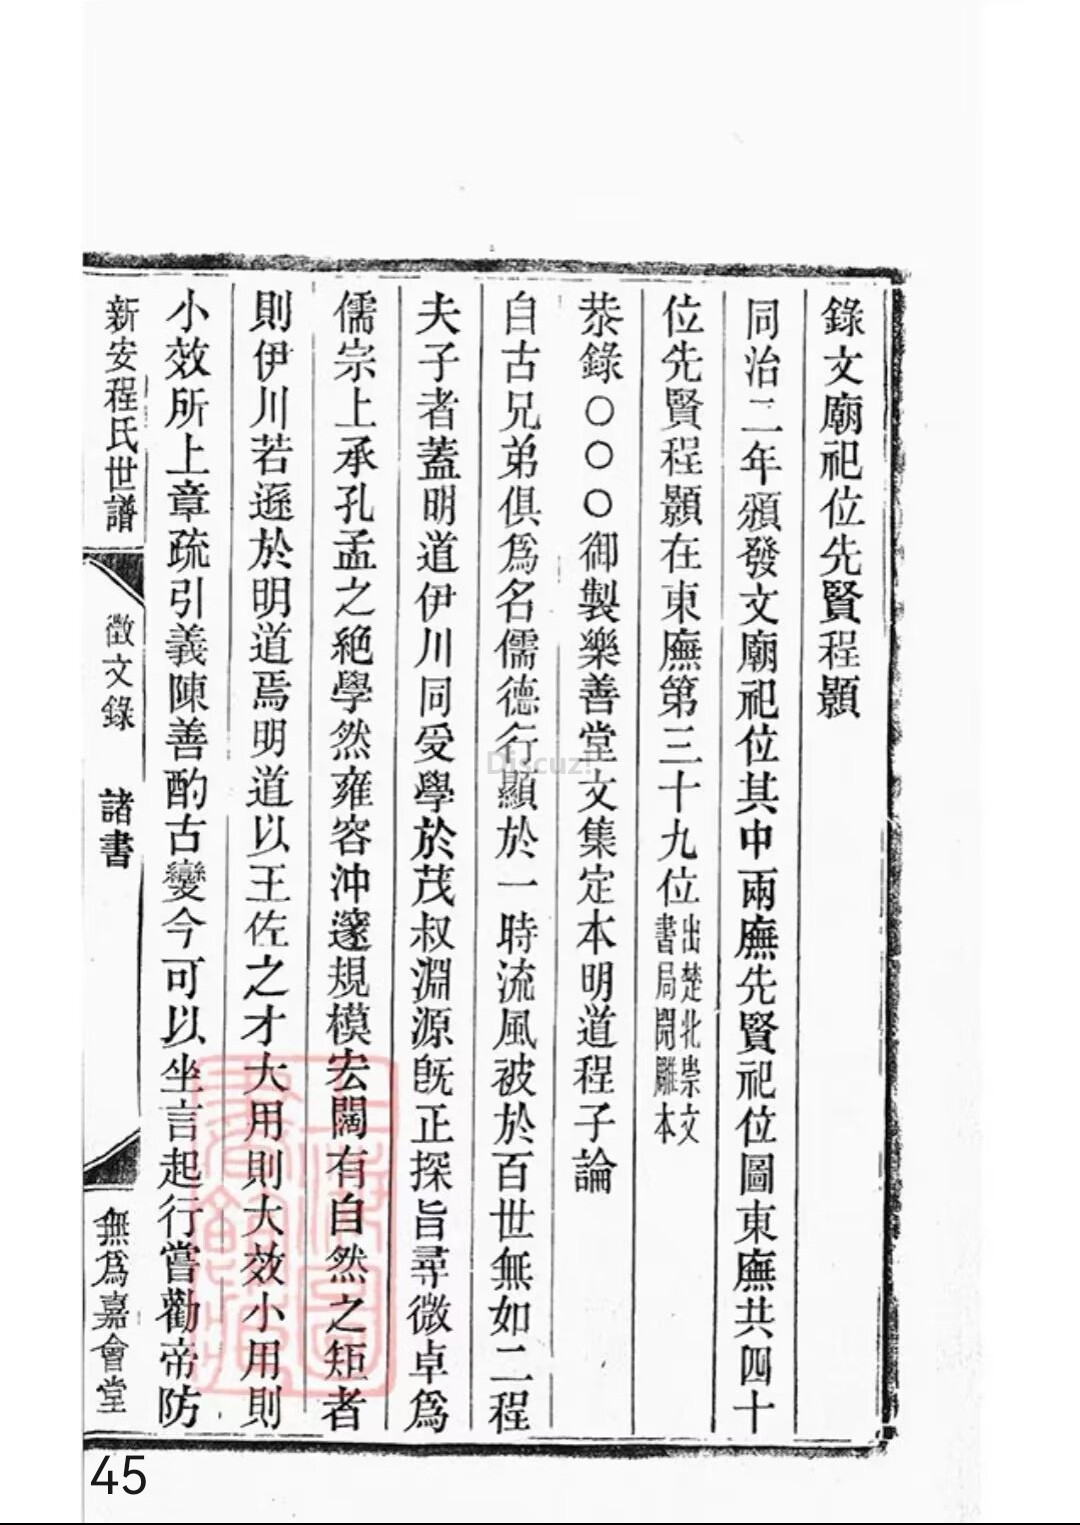 錄文廟祀位先賢程顥
同治二年頒發文廟祀位其中兩廡先賢祀位圖東廡共四十
位先賢程顥在東廡第三十九位出楚北崇文
書局開雕本
恭錄○○○御製樂善堂文集定本明道程子論
自古兄弟俱爲名儒德行顯於一時流風被於百世無如二程
夫子者蓋明道伊川同受學於茂叔淵源旣正探旨尋微卓爲
儒宗上承孔孟之絕學然雍容沖邃規模宏闊有自然之矩者
則伊川若遜於明道焉明道以王佐之才大用則大效小用則
小效所上章疏引義陳善酌古變今可以坐言起行嘗勸帝防
新安程氏世譜
徵文錄
諸書
無爲嘉會堂
上海圖
書館藏
Discuz!
45